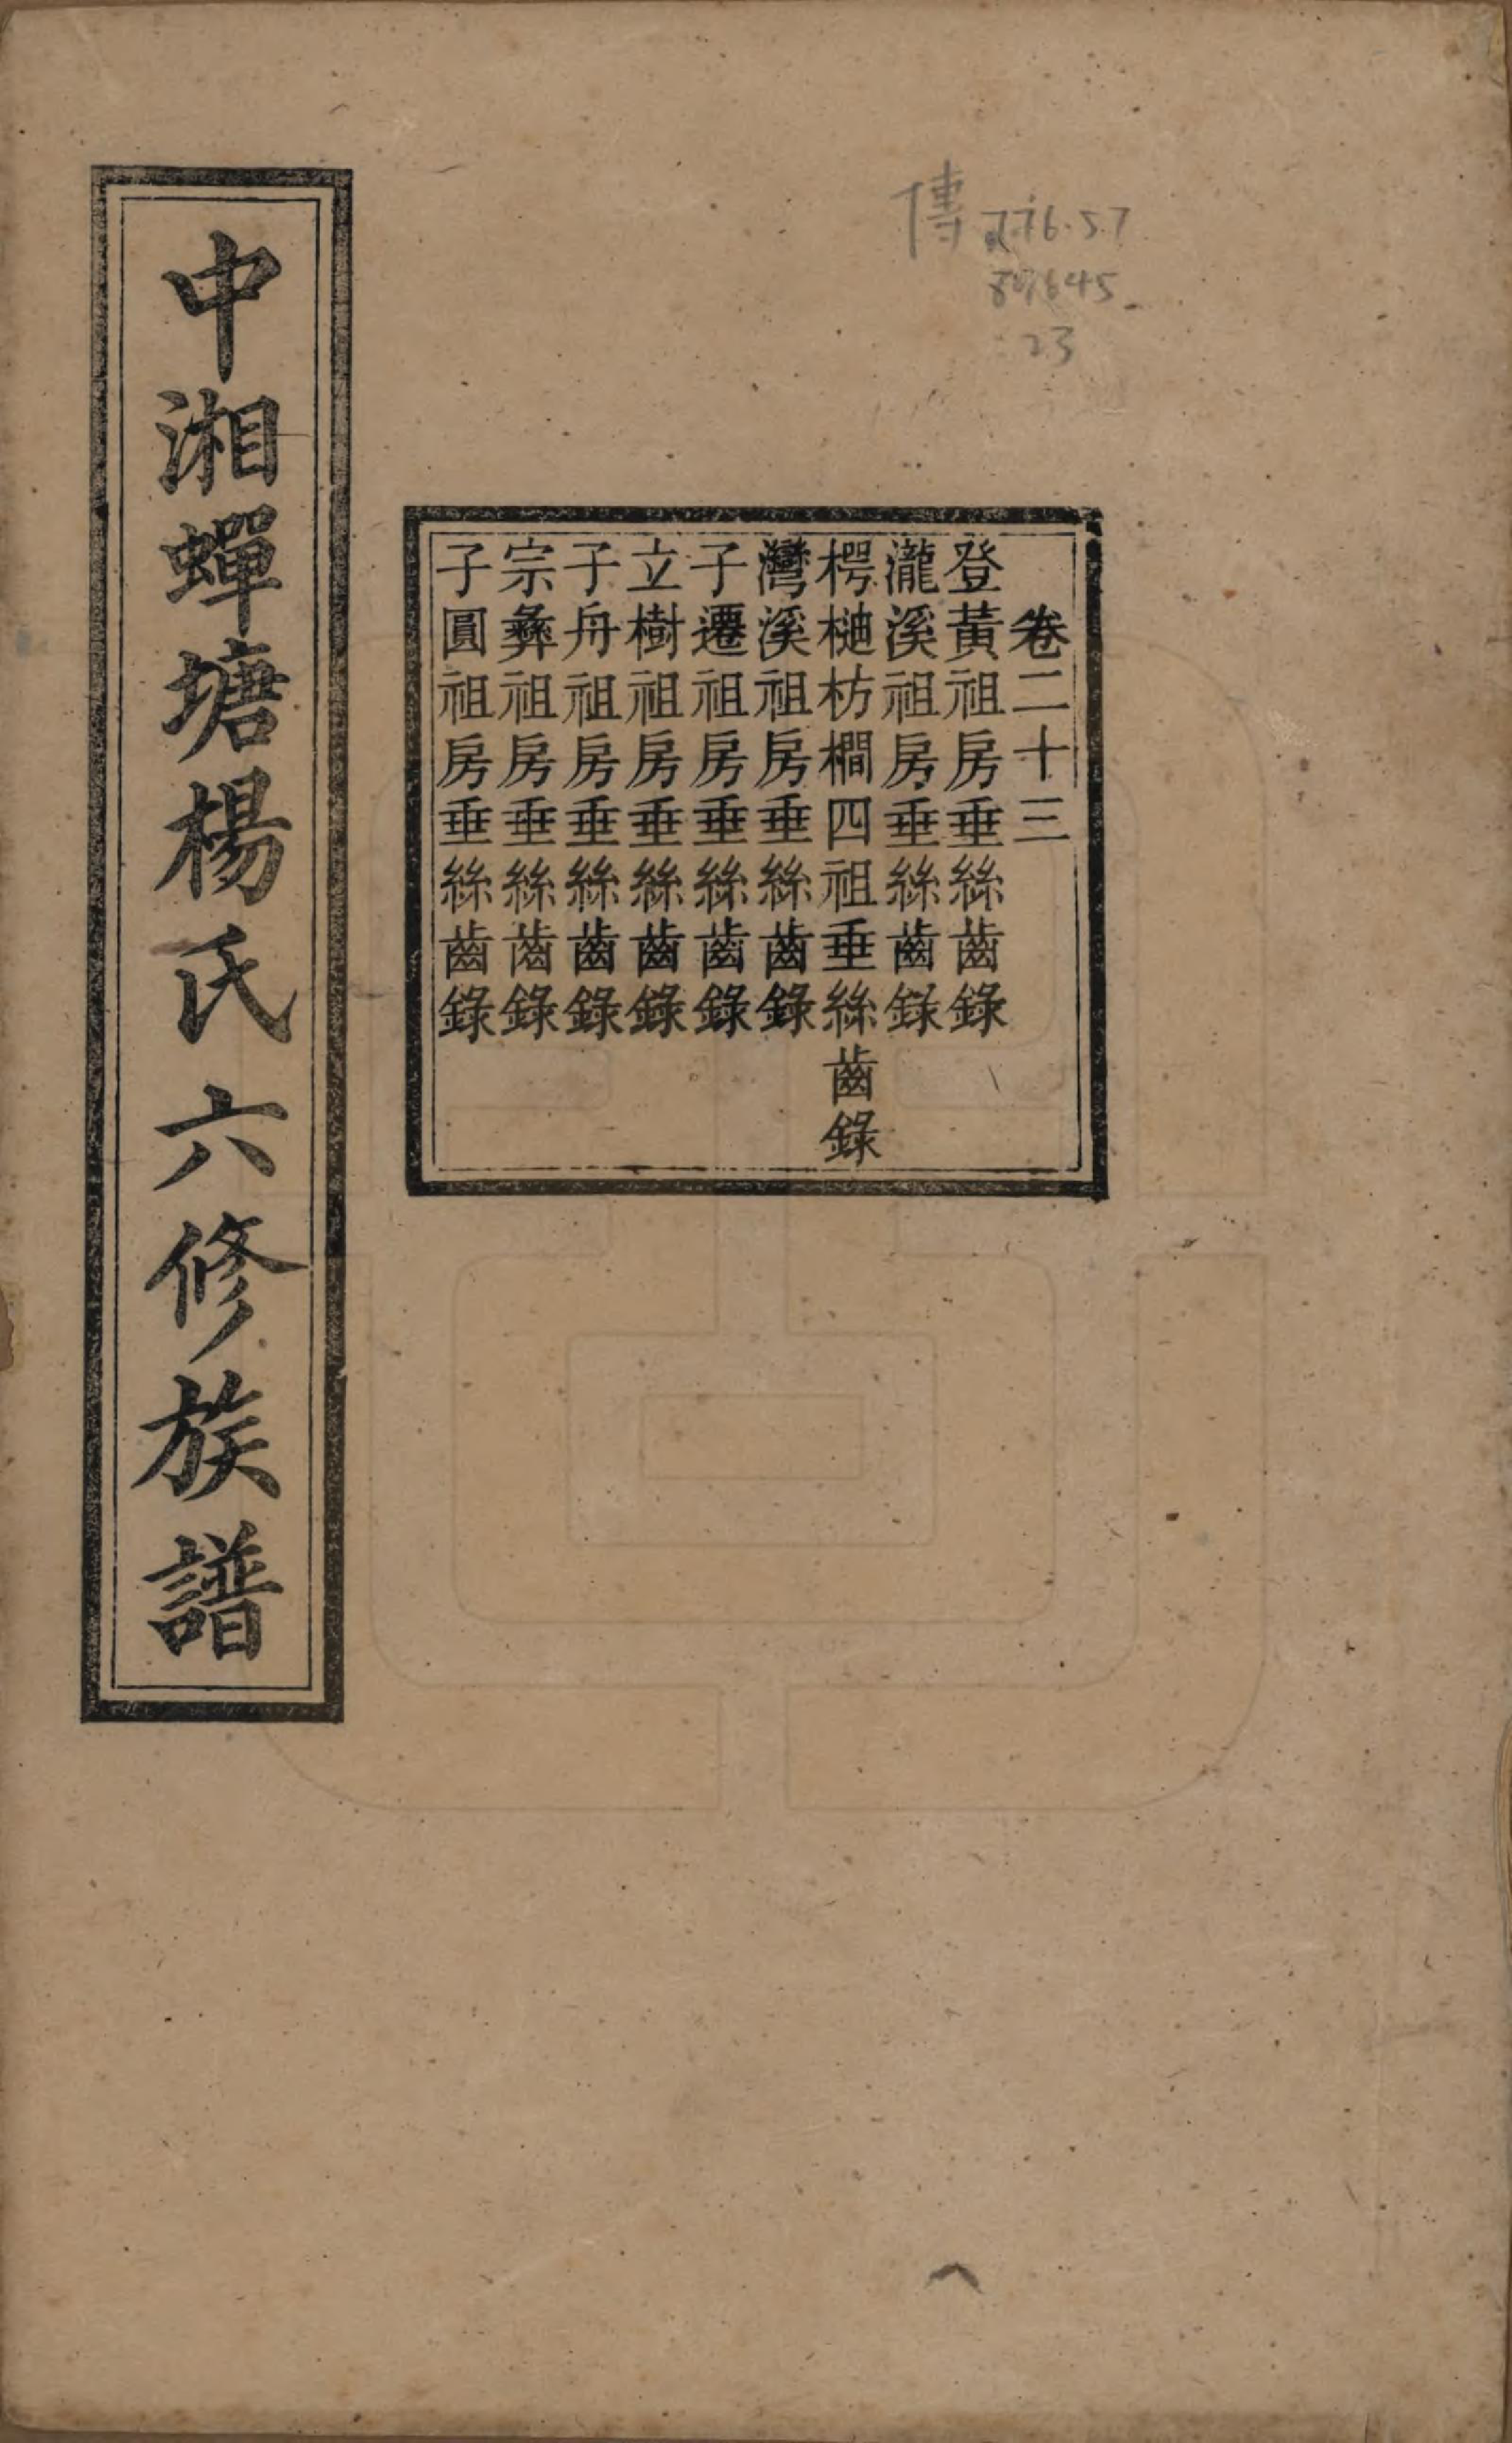 傳 776.57
807645
23
卷二十三
登黃祖房垂絲齒錄
瀧溪祖房垂絲齒錄
樗樋枋橺四祖垂絲齒錄
灣溪祖房垂絲齒錄
子遷祖房垂絲齒錄
立樹祖房垂絲齒錄
子舟祖房垂絲齒錄
宗彝祖房垂絲齒錄
子圓祖房垂絲齒錄
中湘蟬塘楊氏六修族譜